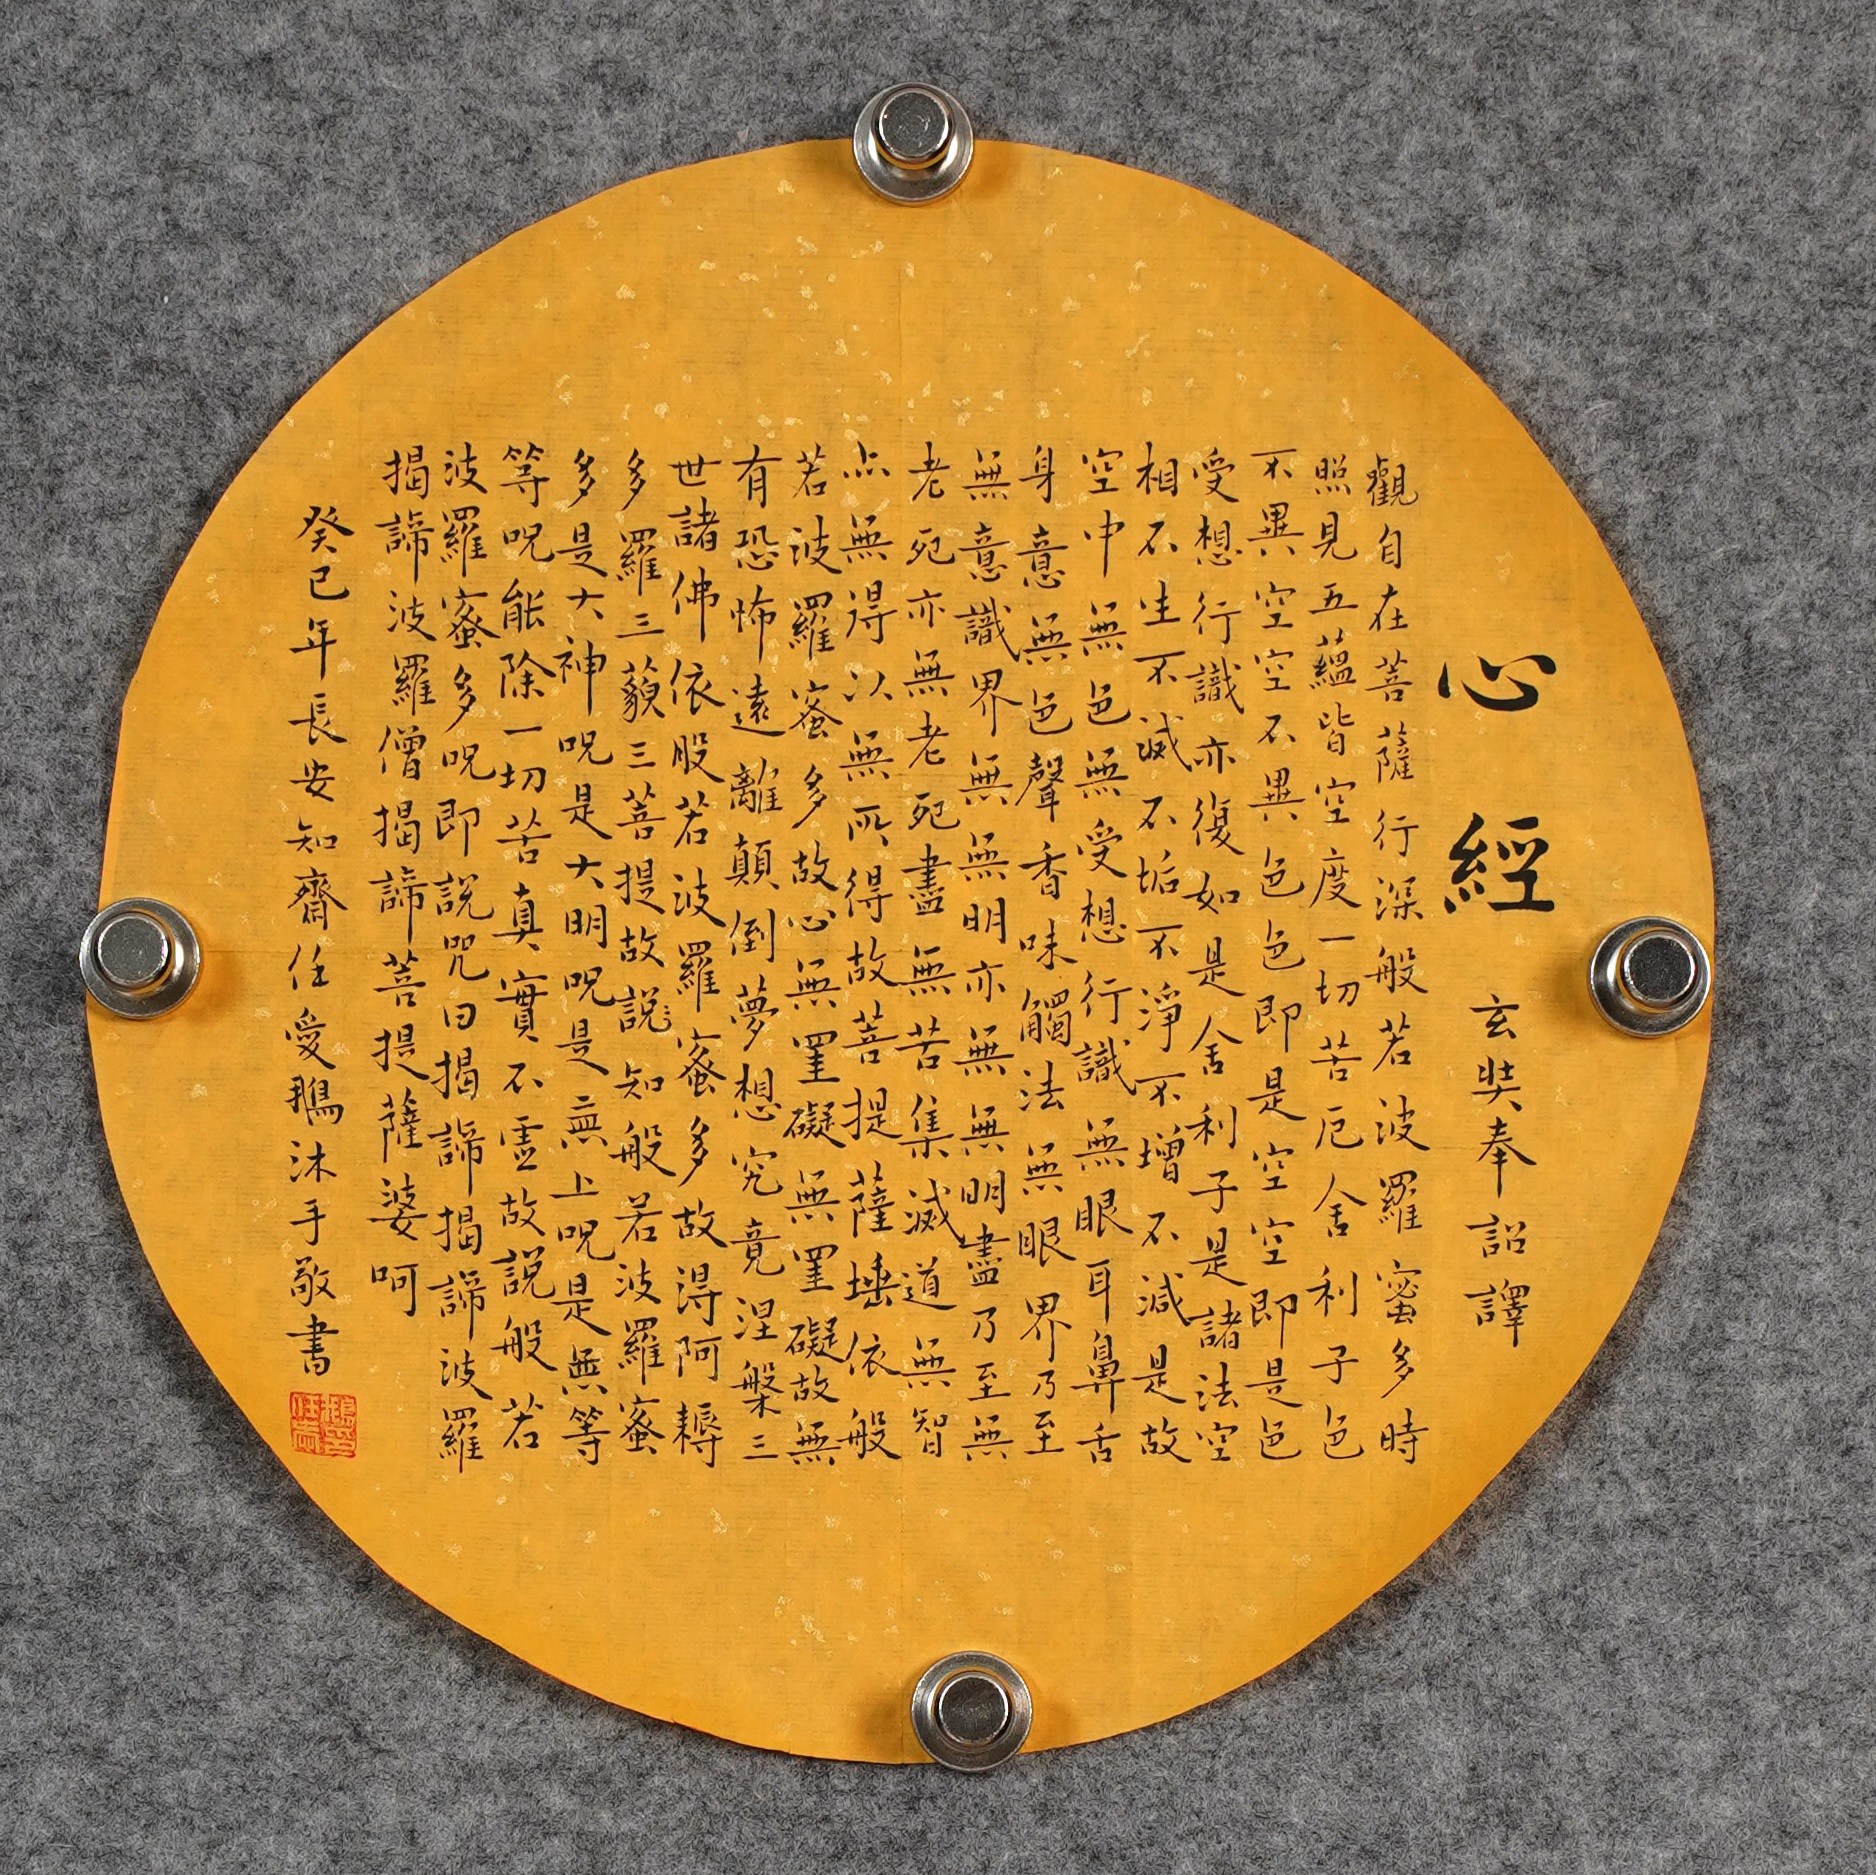 心經 玄奘奉詔譯
觀自在菩薩行深般若波羅蜜多時
照見五蘊皆空度一切苦厄舍利子色
不異空空不異色色即是空空即是色
受想行識亦復如是舍利子是諸法空
相不生不滅不垢不淨不增不減是故
空中無色無受想行識無眼耳鼻舌
身意無色聲香味觸法無眼界乃至
無意識界無無明亦無無明盡乃至無
老死亦無老死盡無苦集滅道無智
亦無得以無所得故菩提薩埵依般
若波羅蜜多故心無罣礙無罣礙故無
有恐怖遠離顛倒夢想究竟涅槃三
世諸佛依般若波羅蜜多故得阿耨
多羅三藐三菩提故説知般若波羅蜜
多是大神呪是大明呪是無上呪是無等
等呪能除一切苦真實不虛故説般若
波羅蜜多呪即説咒曰揭諦揭諦波羅
揭諦波羅僧揭諦菩提薩婆呵
癸巳年長安知齋任愛鵝沐手敬書